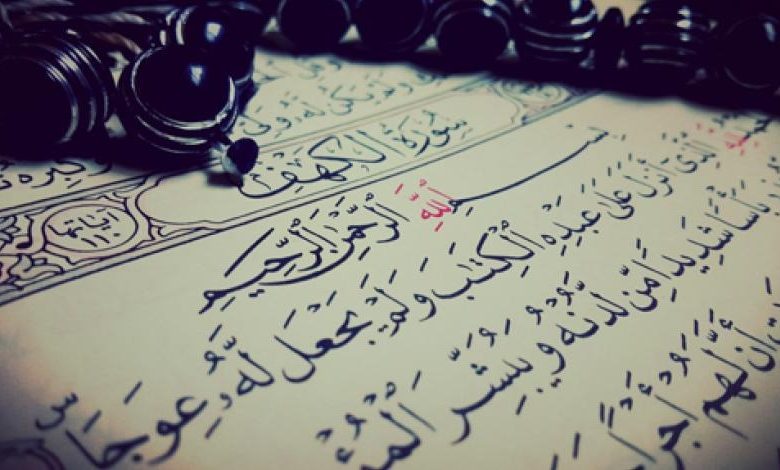 ولم يكن له ولى
سُورَةُ الْكَهْفِ
آياتها ١١٠
بِسْمِ اللَّهِ الرَّحْمَٰنِ الرَّحِيمِ
الَّذِى أَنْزَلَ عَلَىٰ عَبْدِهِ الْكِتَٰبَ وَلَمْ يَجْعَلْ لَهُ عِوَجَا س
بَأْسًا شَدِيدًا مِنْ لَدُنْهُ وَيُبَشِّرَ الْمُؤ
أَنَّ لَهُمْ أَجْرًا